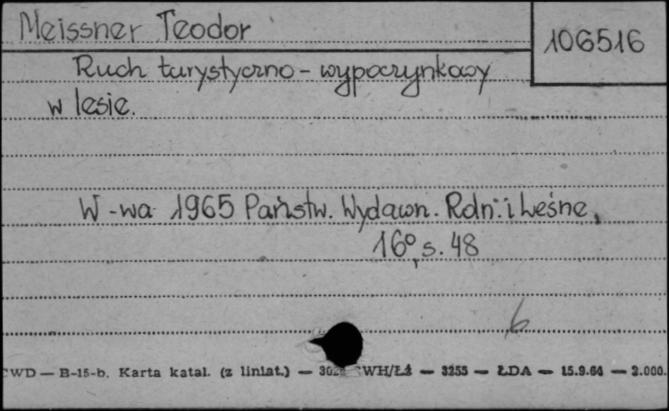 Meissner Teodor
106516
Ruch turystyczno-wypoczynkowy
w lesie.
W-wa 1965 Państw. Wydawn. Roln. i Leśne,
16°, s. 48
6
CWD — B-15-b. Karta katal. (z liniat.) — WH/Łż — 3255 — ŁDA — 15.9.64 — 2.000.